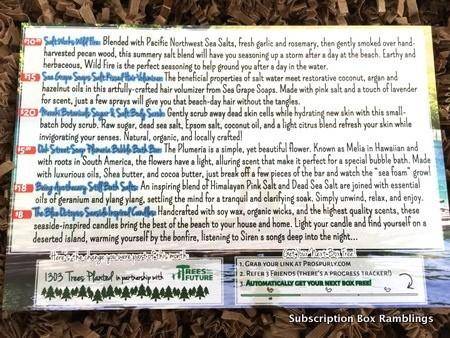 $20 Salt Works Wild Fire: Blended with Pacific Northwest Sea Salts, fresh garlic and rosemary, then gently smoked over hand-
harvested pecan wood, this summery salt blend will have you seasoning up a storm after a day at the beach. Earthy and
herbaceous, Wild Fire is the perfect seasoning to help ground you after a day in the water.
$15 Sea Grape Soaps Salt Hair Volumizer: The beneficial properties of salt water meet restorative coconut, argan and
hazelnut oils in this artfully-crafted hair volumizer from Sea Grape Soaps. Made with pink salt and a touch of lavender
for scent, just a few sprays will give you that beach-day hair without the tangles.
$20 Botanicals Sugar & Salt Body Scrub: Gently scrub away dead skin cells while hydrating new skin with this small-
batch body scrub. Raw sugar, dead sea salt, Epsom salt, coconut oil, and a light citrus blend refresh your skin while
invigorating your senses. Natural, organic, and locally crafted!
$5 Oak Street Soap Plumeria Bubble Bath Bar: The Plumeria is a simple, yet beautiful flower. Known as Melia in Hawaiian and
with roots in South America, the flowers have a light, alluring scent that make it perfect for a special bubble bath. Made
with luxurious oils, Shea butter, and cocoa butter, just break off a few pieces of the bar and watch the "sea foam" grow!
$18 Being Apothecary Still Bath Salts: An inspiring blend of Himalayan Pink Salt and Dead Sea Salt are joined with essential
oils of geranium, ylang ylang, and lime, setting the mind for a tranquil and clarifying soak. Simply unwind, relax, and enjoy.
$8 The Blue Octopus Seaside Inspired Candles: Handcrafted with soy wax, organic wicks, and the highest quality scents, these
seaside-inspired candles bring the best of the beach to your house and home. Light your candle and find yourself on a
deserted island, warming yourself by the bonfire, listening to Siren's songs deep into the night...
Here's the change you were part of this month
1303 Trees Planted in partnership with TREES FOR THE FUTURE
Get your next box free!
1. Grab your link at Prospurly.com
2. Refer 3 friends (there's a progress tracker!)
3. Automatically get your next box free!
Subscription Box Ramblings